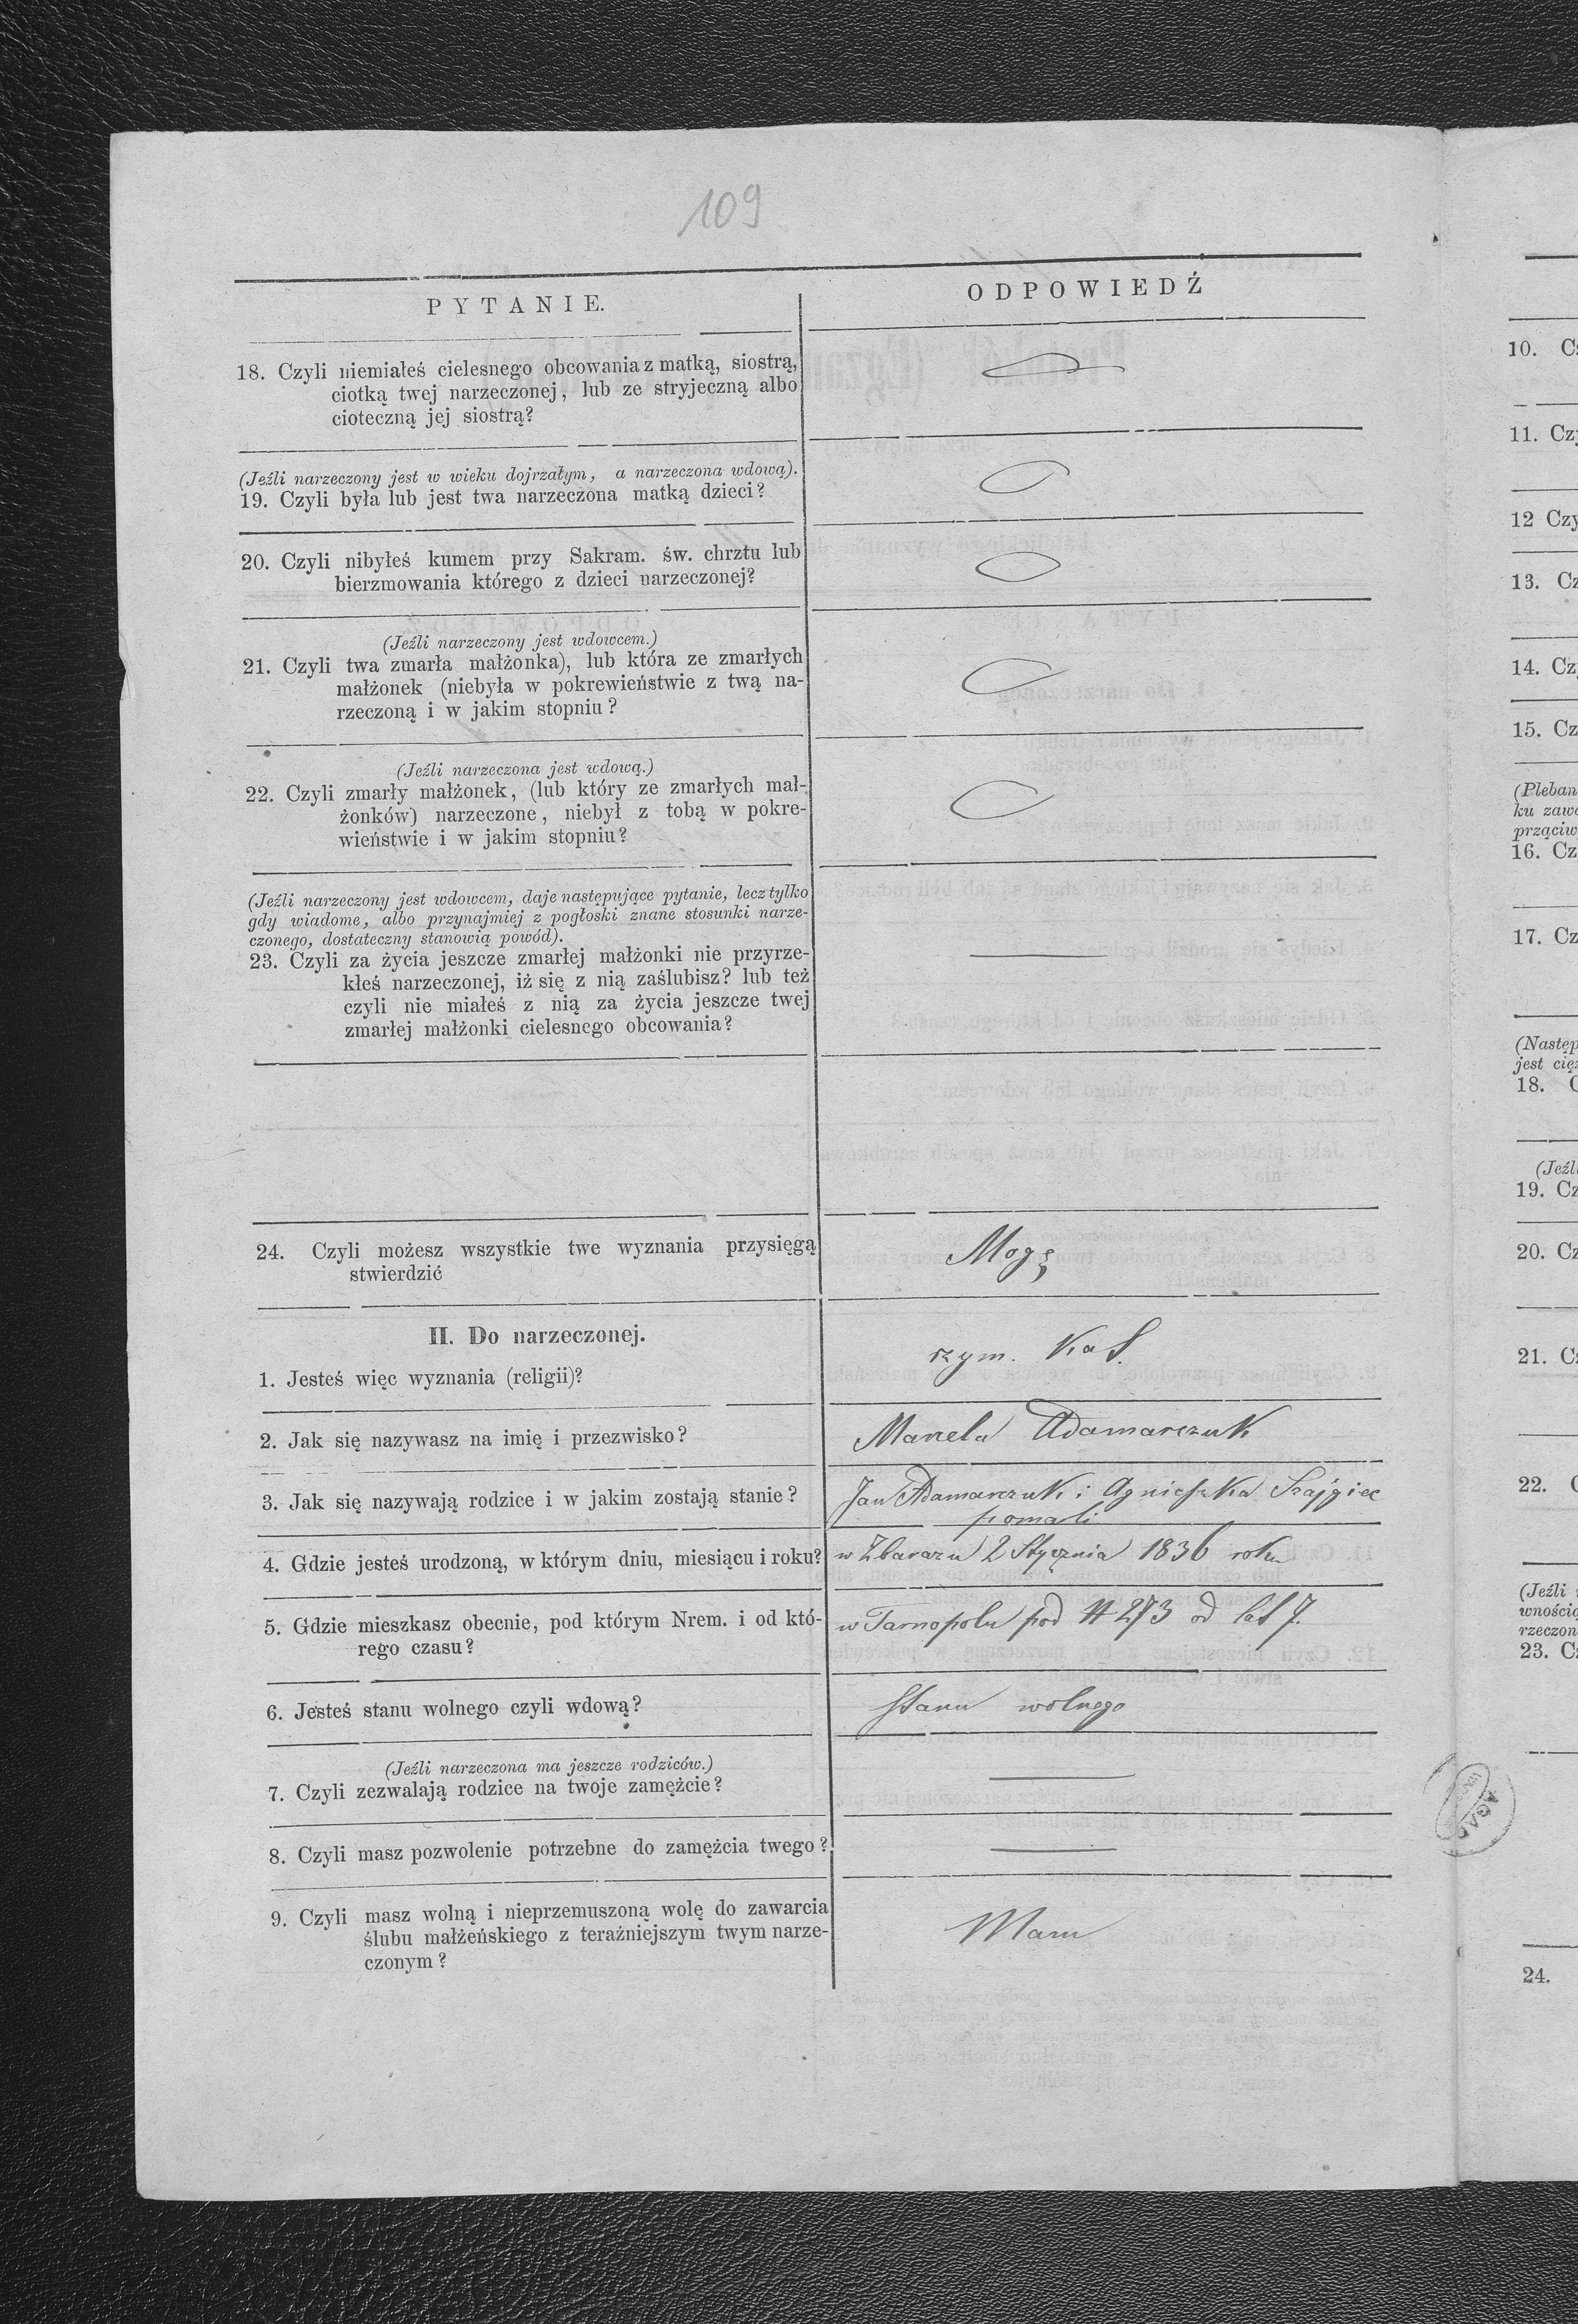 109
PYTANIE.
ODPOWIEDŹ
18. Czyli niemiałeś cielesnego obcowania z matką, siostrą,
ciotką twej narzeczonej, lub ze stryjeczną albo
cioteczną jej siostrą?
(Jeźli narzeczony jest w wieku dojrzałym, a narzeczona wdową).
19. Czyli była lub jest twa narzeczona matką dzieci?
20. Czyli nibyłeś kumem przy Sakram. św. chrztu lub
bierzmowania którego z dzieci narzeczonej?
(Jeźli narzeczony jest wdowcem.)
21. Czyli twa zmarła małżonka), lub która ze zmarłych
małżonek (niebyła w pokrewieństwie z twą na-
rzeczoną i w jakim stopniu?
(Jeźli narzeczona jest wdową.)
22. Czyli zmarły małżonek, (lub który ze zmarłych mał-
żonków) narzeczone, niebył z tobą w pokre-
wieństwie i w jakim stopniu?
(Jeźli narzeczony jest wdowcem, daje następujące pytanie, lecz tylko
gdy wiadome, albo przynajmiej z pogłoski znane stosunki narze-
czonego, dostateczny stanowią powód).
23. Czyli za życia jeszcze zmarłej małżonki nie przyrze-
kłeś narzeczonej, iż się z nią zaślubisz? lub też
czyli nie miałeś z nią za życia jeszcze twej
zmarłej małżonki cielesnego obcowania?
24. Czyli możesz wszystkie twe wyznania przysięgą
stwierdzić
Mogę
II. Do narzeczonej.
1. Jesteś więc wyznania (religii)?
rzym. Kat.
2. Jak się nazywasz na imię i przezwisko?
Marcela Adamarczuk
3. Jak się nazywają rodzice i w jakim zostają stanie?
Jan Adamarczuk i Agnieszka
pomarli
4. Gdzie jesteś urodzoną, w którym dniu, miesiącu i roku?
w Zbarazu 2 Stycznia 1836 roku
5. Gdzie mieszkasz obecnie, pod którym Nrem. i od któ-
rego czasu?
w Tarnopolu pod # 273 od lat 7.
6. Jesteś stanu wolnego czyli wdową?
Stanu wolnego
(Jeźli narzeczona ma jeszcze rodziców.)
7. Czyli zezwalają rodzice na twoje zamężcie?
8. Czyli masz pozwolenie potrzebne do zamężcia twego?
9. Czyli masz wolną i nieprzemuszoną wolę do zawarcia
ślubu małżeńskiego z teraźniejszym twym narze-
czonym?
Mam
10.
11.
12
13.
14.
15.
(Pleban
16.
17.
18.
19.
20.
21.
22.
23.
24.
AGAD